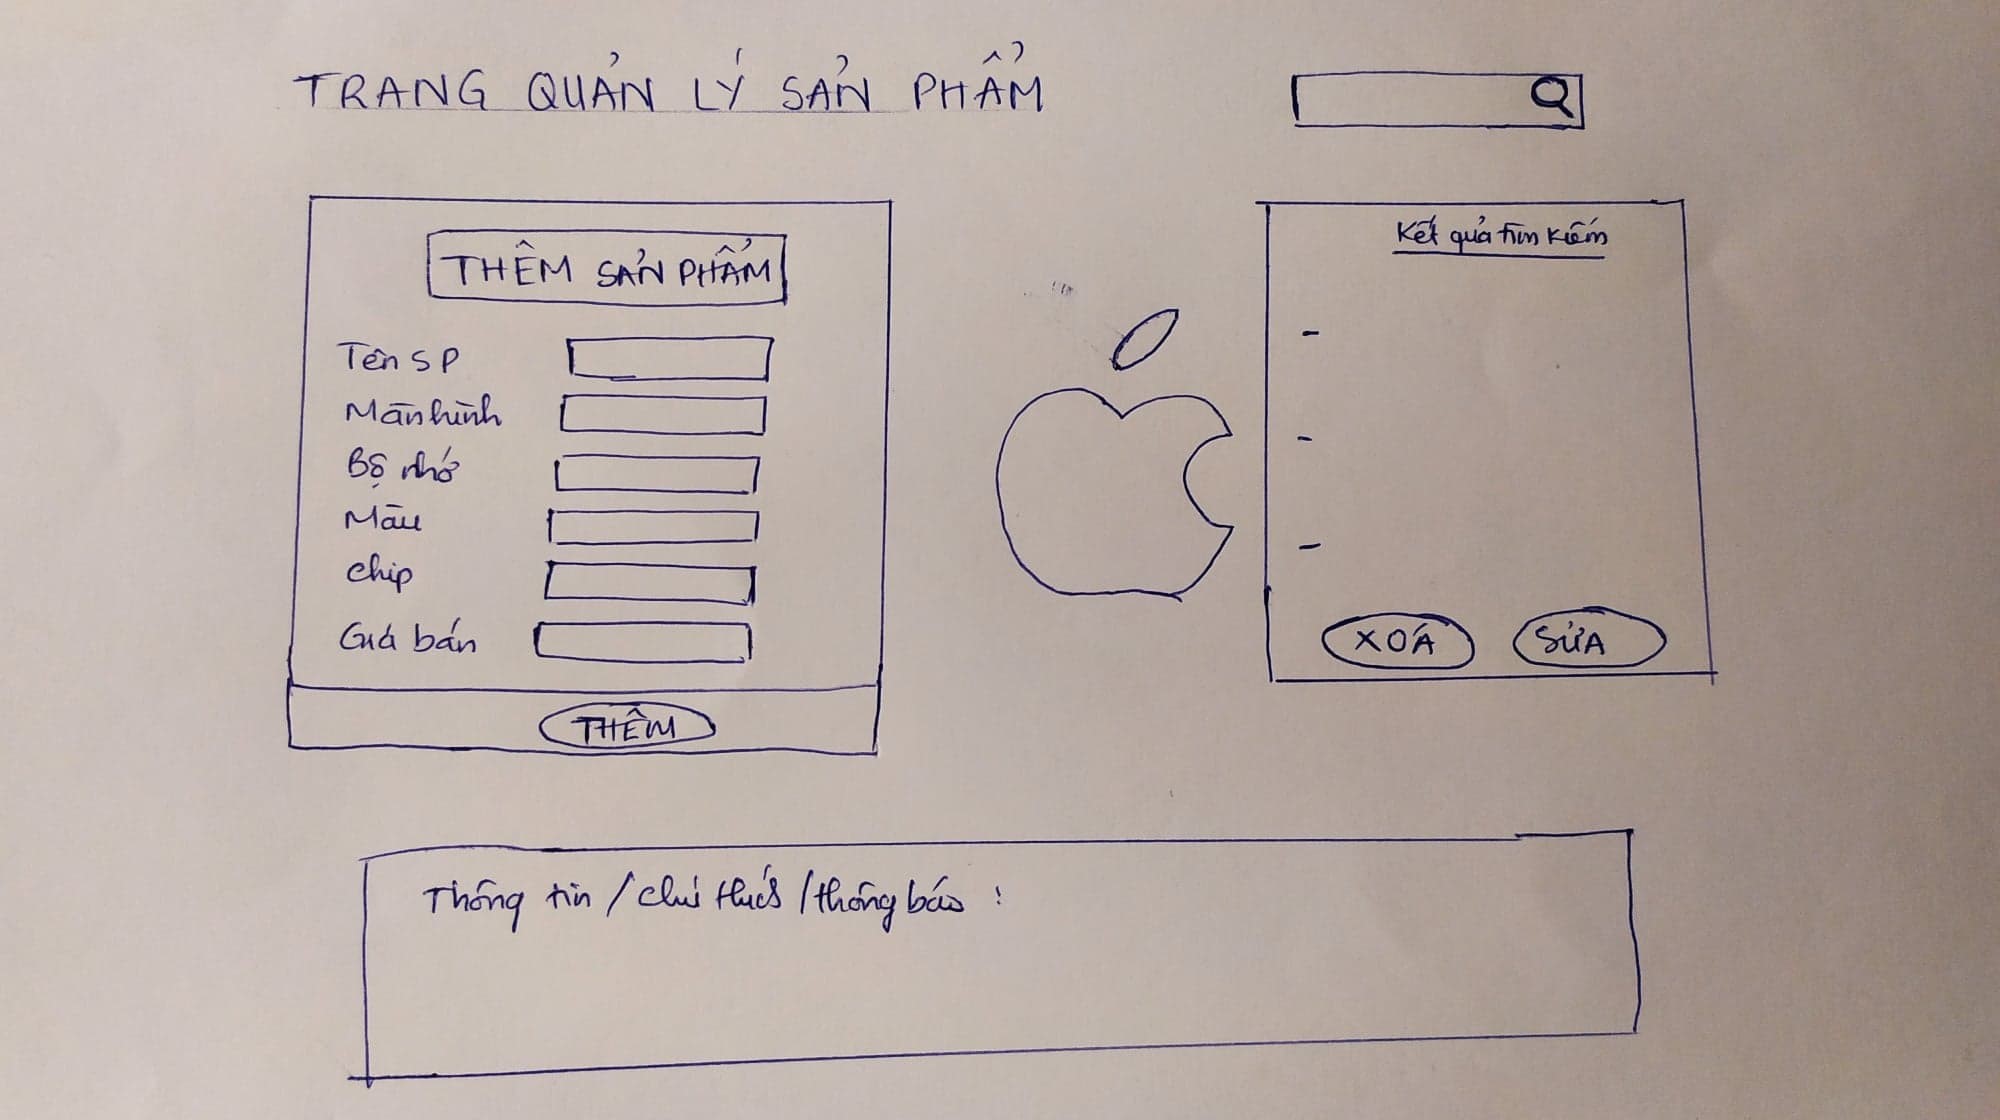 TRANG QUẢN LÝ SẢN PHẨM
THÊM SẢN PHẨM
Tên SP
Màn hình
Bộ nhớ
Màu
chip
Giá bán
THÊM
Kết quả tìm kiếm
-
-
-
XOÁ
SỬA
Thông tin / chú thích / thông báo :